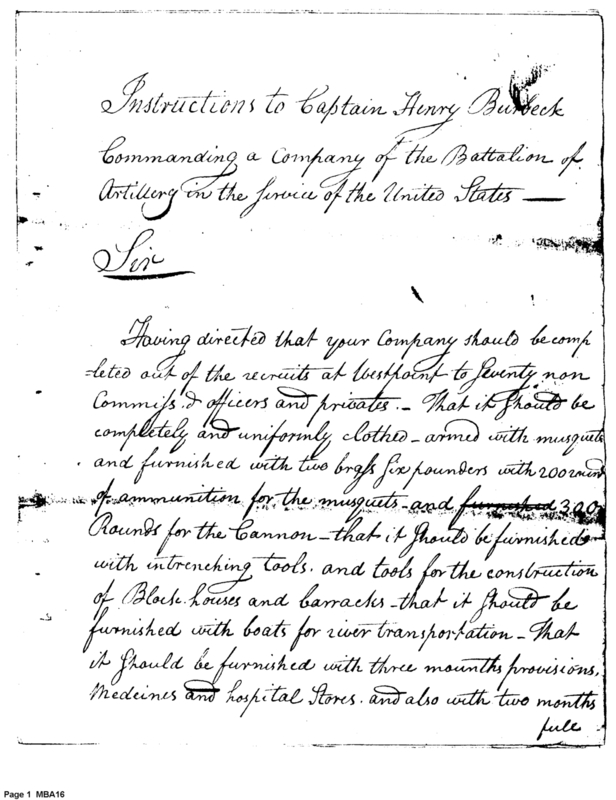 Instructions to Captain Henry Burbeck
Commanding a Company of the Battalion of
Artillery in the Service of the United States —
Sir
Having directed that your Company should be comp
=leted out of the recruits at Westpoint to Seventy non
Commiss.d officers and privates. — That it should be
completely and uniformly clothed — armed with musquets
and furnished with two brass six pounders with 200 rounds
of ammunition for the musquets and furnished 300
Rounds for the Cannon — that it should be furnished
with intrenching tools. and tools for the construction
of Block. houses and barracks — that it should be
furnished with boats for river transportation — That
it should be furnished with three mounths provisions,
Medecines and hospital Stores. and also with two months
full
Page 1 MBA16